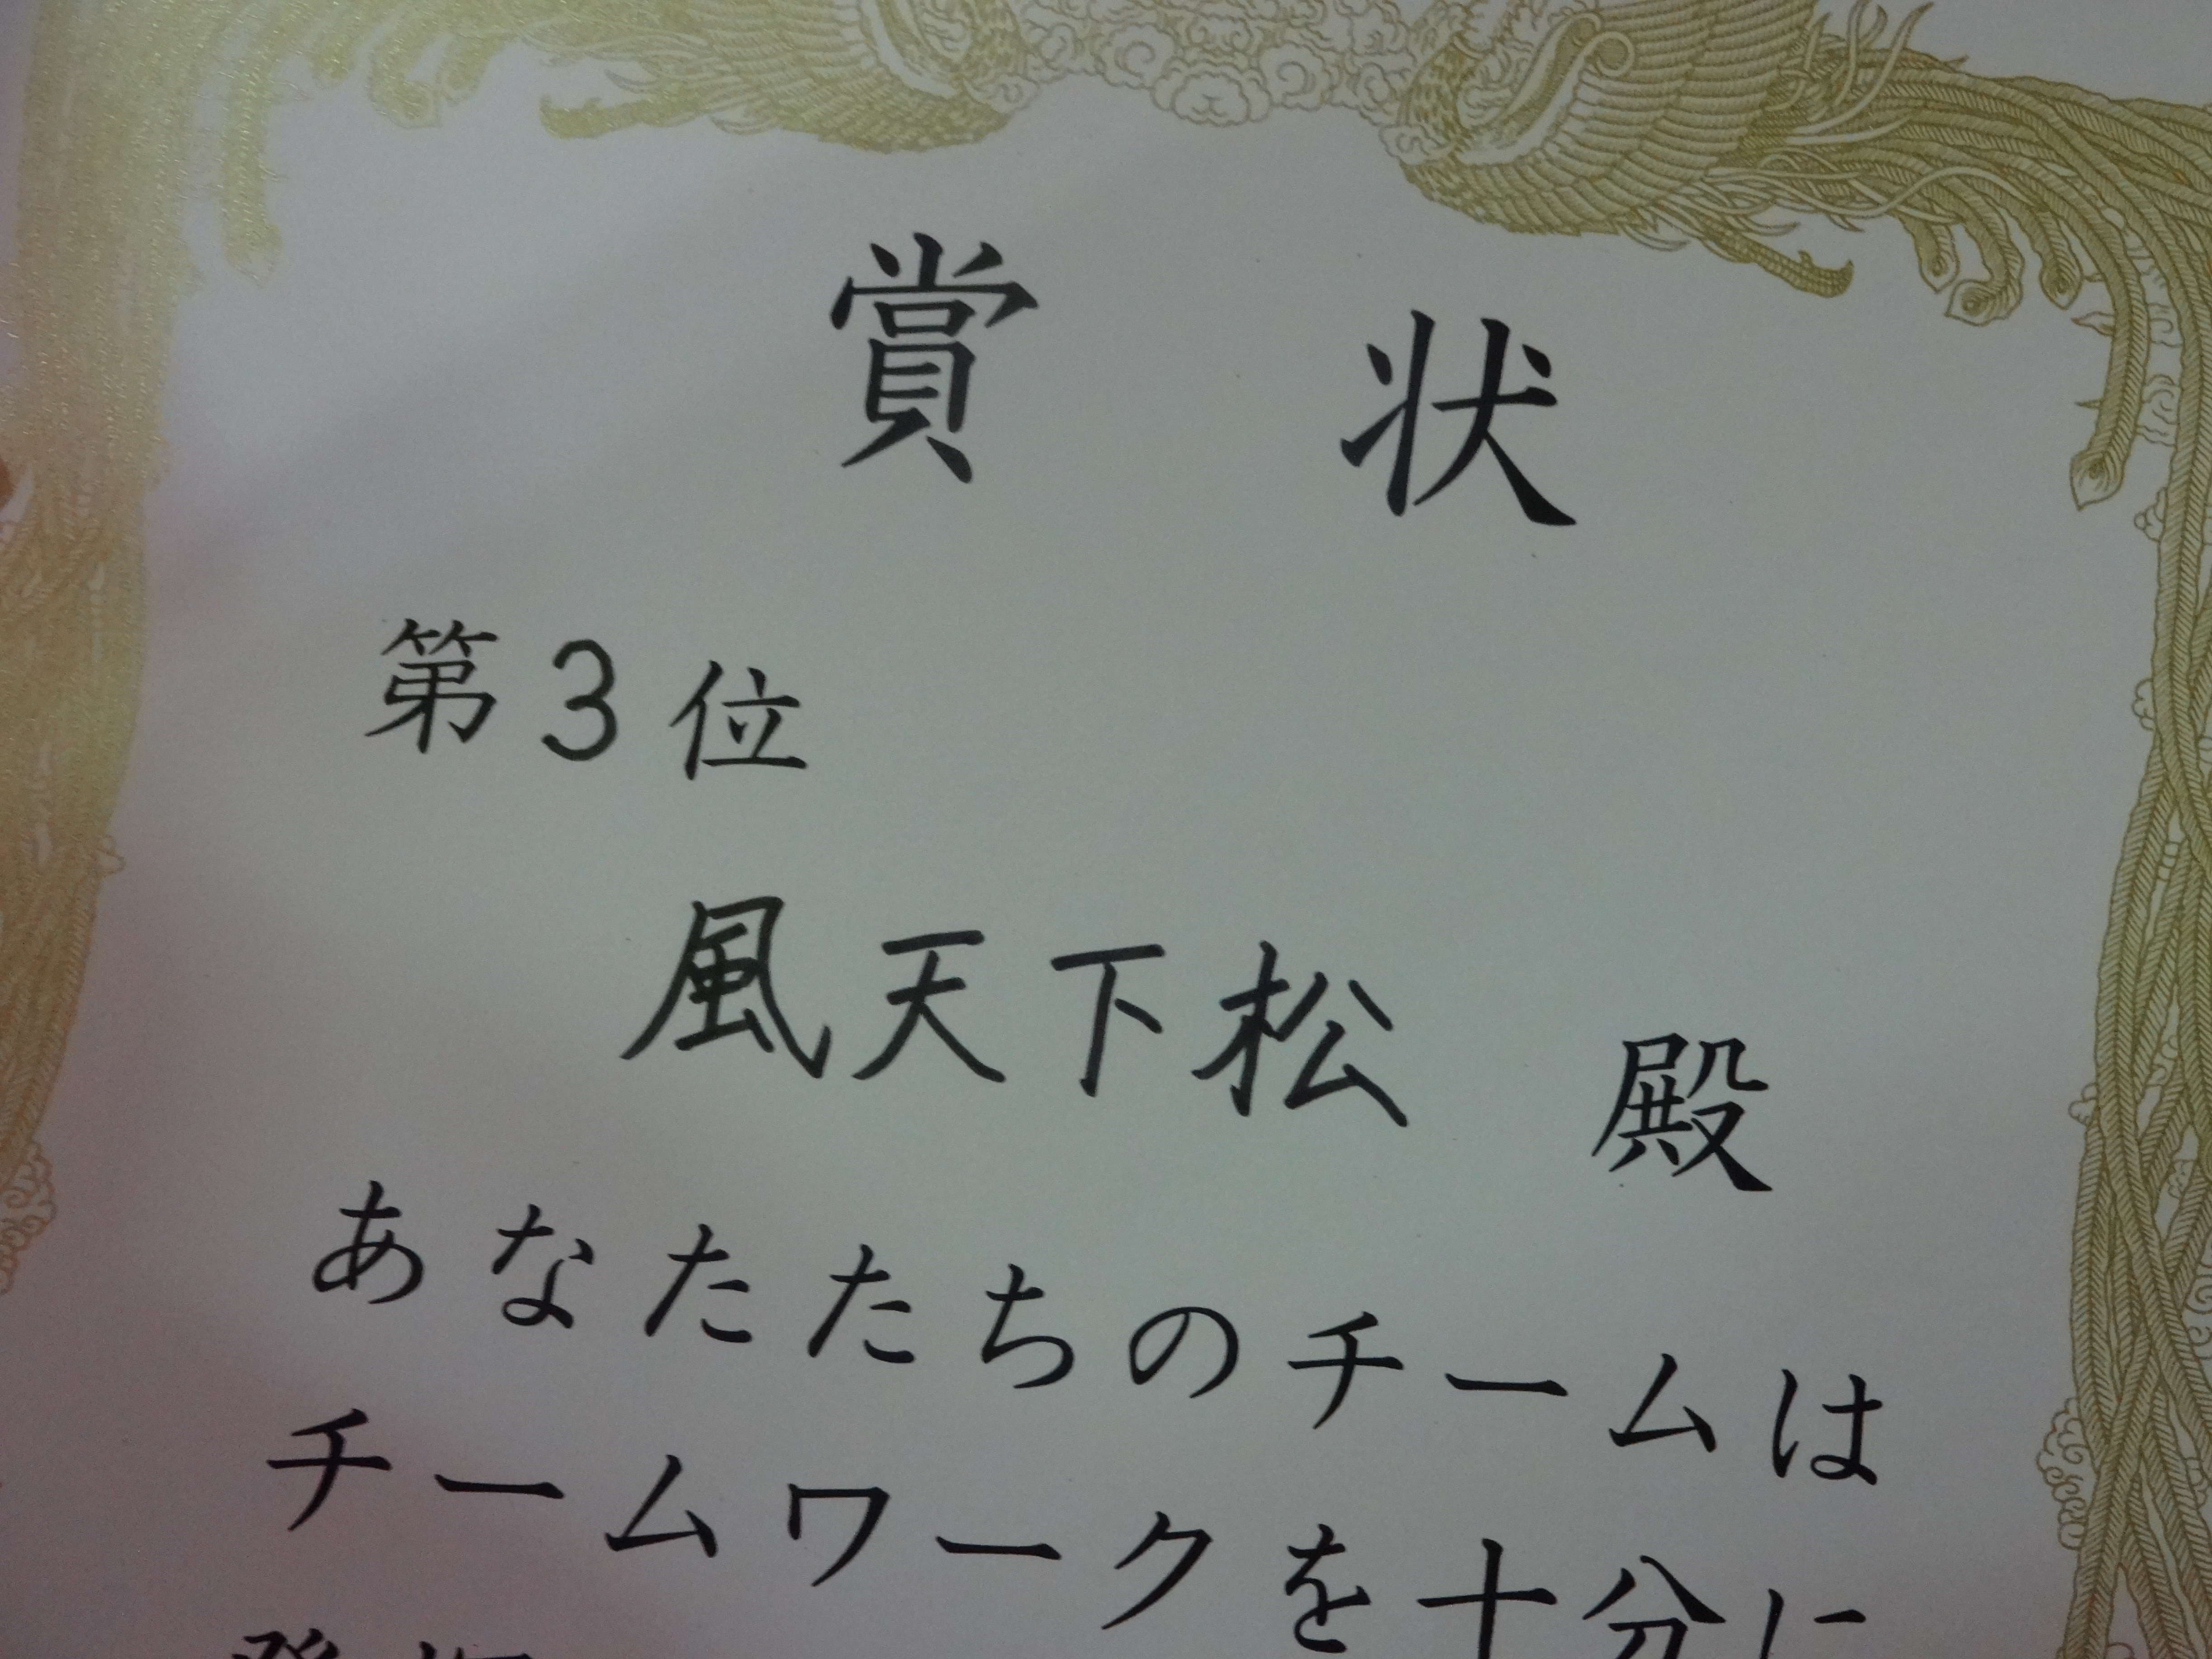 賞状
第3位
風天下松 殿
あなたたちのチームは
チームワークを十分に